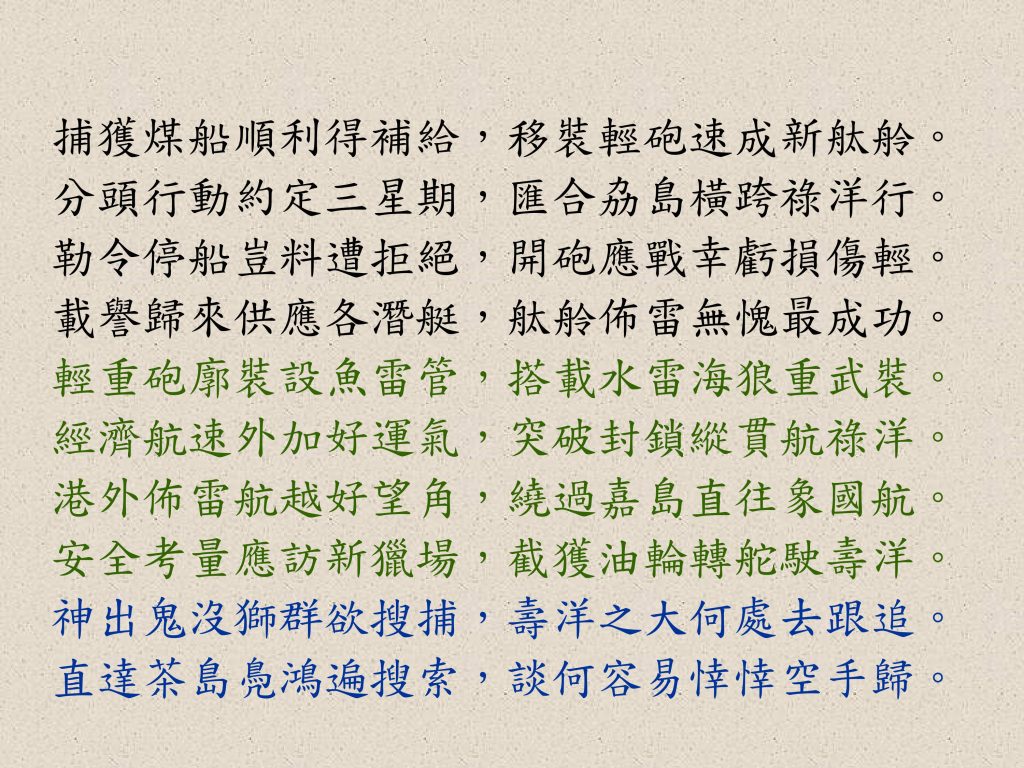 捕獲煤船順利得補給，移裝輕砲速成新舦舲。
分頭行動約定三星期，匯合劦島橫跨祿洋行。
勒令停船豈料遭拒絕，開砲應戰幸虧損傷輕。
載譽歸來供應各潛艇，舦舲佈雷無愧最成功。
輕重砲廓裝設魚雷管，搭載水雷海狼重武裝。
經濟航速外加好運氣，突破封鎖縱貫航祿洋。
港外佈雷航越好望角，繞過嘉島直往象國航。
安全考量應訪新獵場，截獲油輪轉舵駛壽洋。
神出鬼沒獅群欲搜捕，壽洋之大何處去跟追。
直達茶島鳧鴻遍搜索，談何容易悻悻空手歸。